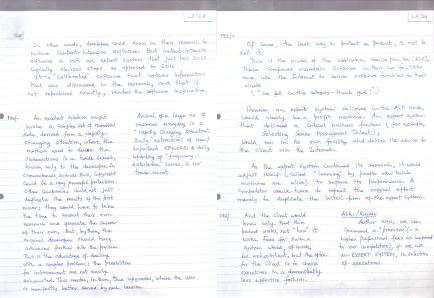 In other words, developers could draw on their research to
produce content-intensive software. But content-intensive
software is not an expert system that just has 2000
logically derived steps as opposed to 200.
It is "calibrated" software that contains information
that was discovered in the research, and that if
not reproduced exactly, renders the software inoperative.
An explicit solution might
involve a complex set of numerical
data, derived from a rapidly-
changing situation, where the
method used to derive the
observations is a trade secret,
known only to the developer. In
circumstances such as this, Copyright
could be a very powerful protection.
Other companies could not just
duplicate the results of the first
mover; they would have to take
the time to restart their own
research and generate the answer
of their own. But, by then, the
original developer should have
advanced further into the problem.
This is the advantage of dealing
with a complex problem; the possibilities
for improvement are not easily
exhausted. This creates, in turn, true upgrades, where the user
is manifestly better served by each version.
Analysis of a large no. of
insurance enquiries is a
"rapidly changing situation".
Daily extraction of new/
important elements & daily
updating of "frequency"
distributed scores, is our
trade-secret.
Of course, the best way to protect a product, is not to
sell it.
This is the model of the application service provider (ASP).
These companies maintain software in their own facilities
and use the Internet to deliver software facilities to their
clients
("we fall in this category - thank god!")
However, an expert system delivered in the ASP mode,
would clearly be a profit machine. An expert system
that delivered a critical business function (for example,
Selecting Sales Managerial Talent),
would run in its own facility and deliver its advice to
the client via the Internet.
As the expert system continued its research, it would
adjust itself (called "learning" by people who think
machines are alive) to improve its performance. A
competitor would have to repeat the original effort
merely to duplicate the initial form of the expert system.
And the client would
know only that the
product works, not "how" it
works. Fees for such a
system would, of course,
be exorbitant, but the option
for the client is to choose
executives in a demonstrably
less effective fashion.
Abhi/Rajeev
Author says, we can
command a "premium" - a
higher professional fees as compared
to our competitors, if we use
an EXPERT SYSTEM, in selection
of executives.